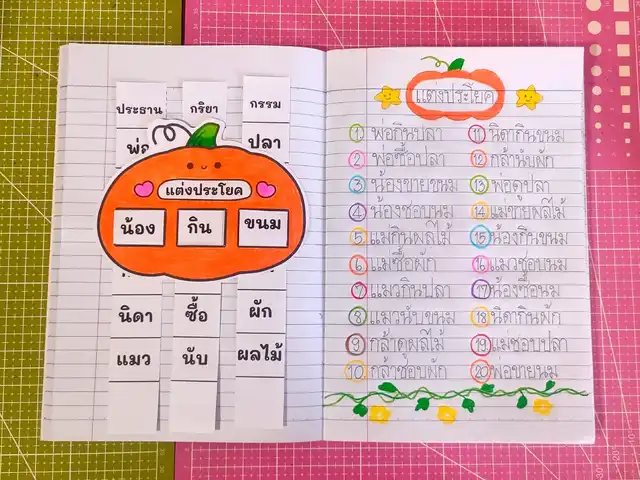 ประธาน กริยา กรรม
พ่อ ปลา
แต่งประโยค
น้อง กิน ขนม
นิดา ซื้อ ผัก
แมว นับ ผลไม้
แต่งประโยค
1 พ่อกินปลา
2 พ่อซื้อปลา
3 น้องขายขนม
4 น้องชอบนม
5 แม่กินผลไม้
6 แม่ซื้อผัก
7 แมวกินปลา
8 แมวนับขนม
9 กล้าดูผลไม้
10 กล้าชอบผัก
11 นิดากินขนม
12 กล้านับผัก
13 พ่อดูปลา
14 แม่ขายผลไม้
15 น้องกินขนม
16 แมวชอบนม
17 น้องซื้อนม
18 นิดากินผัก
19 แม่ชอบปลา
20 พ่อขายนม